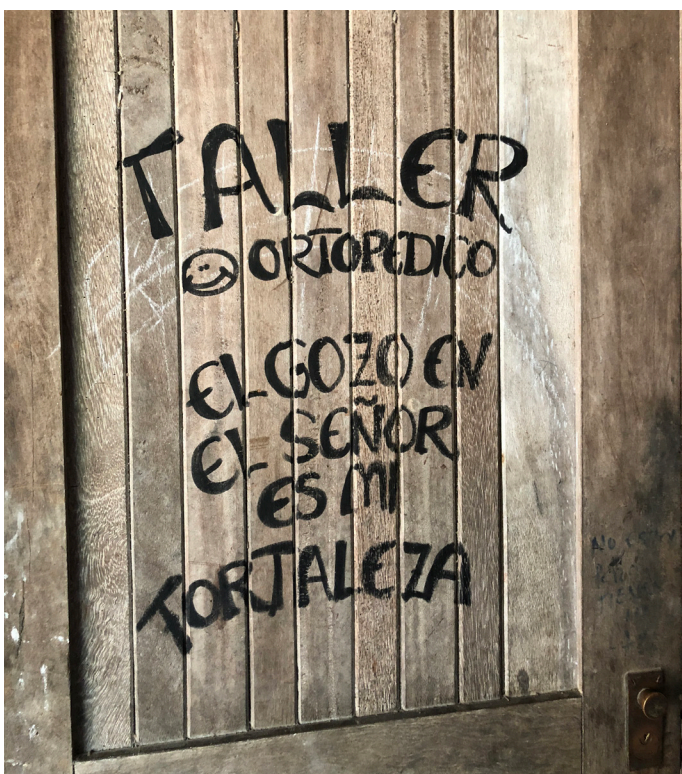 TALLER
ORTOPEDICO
EL GOZO EN
EL SEÑOR
ES MI
FORTALEZA